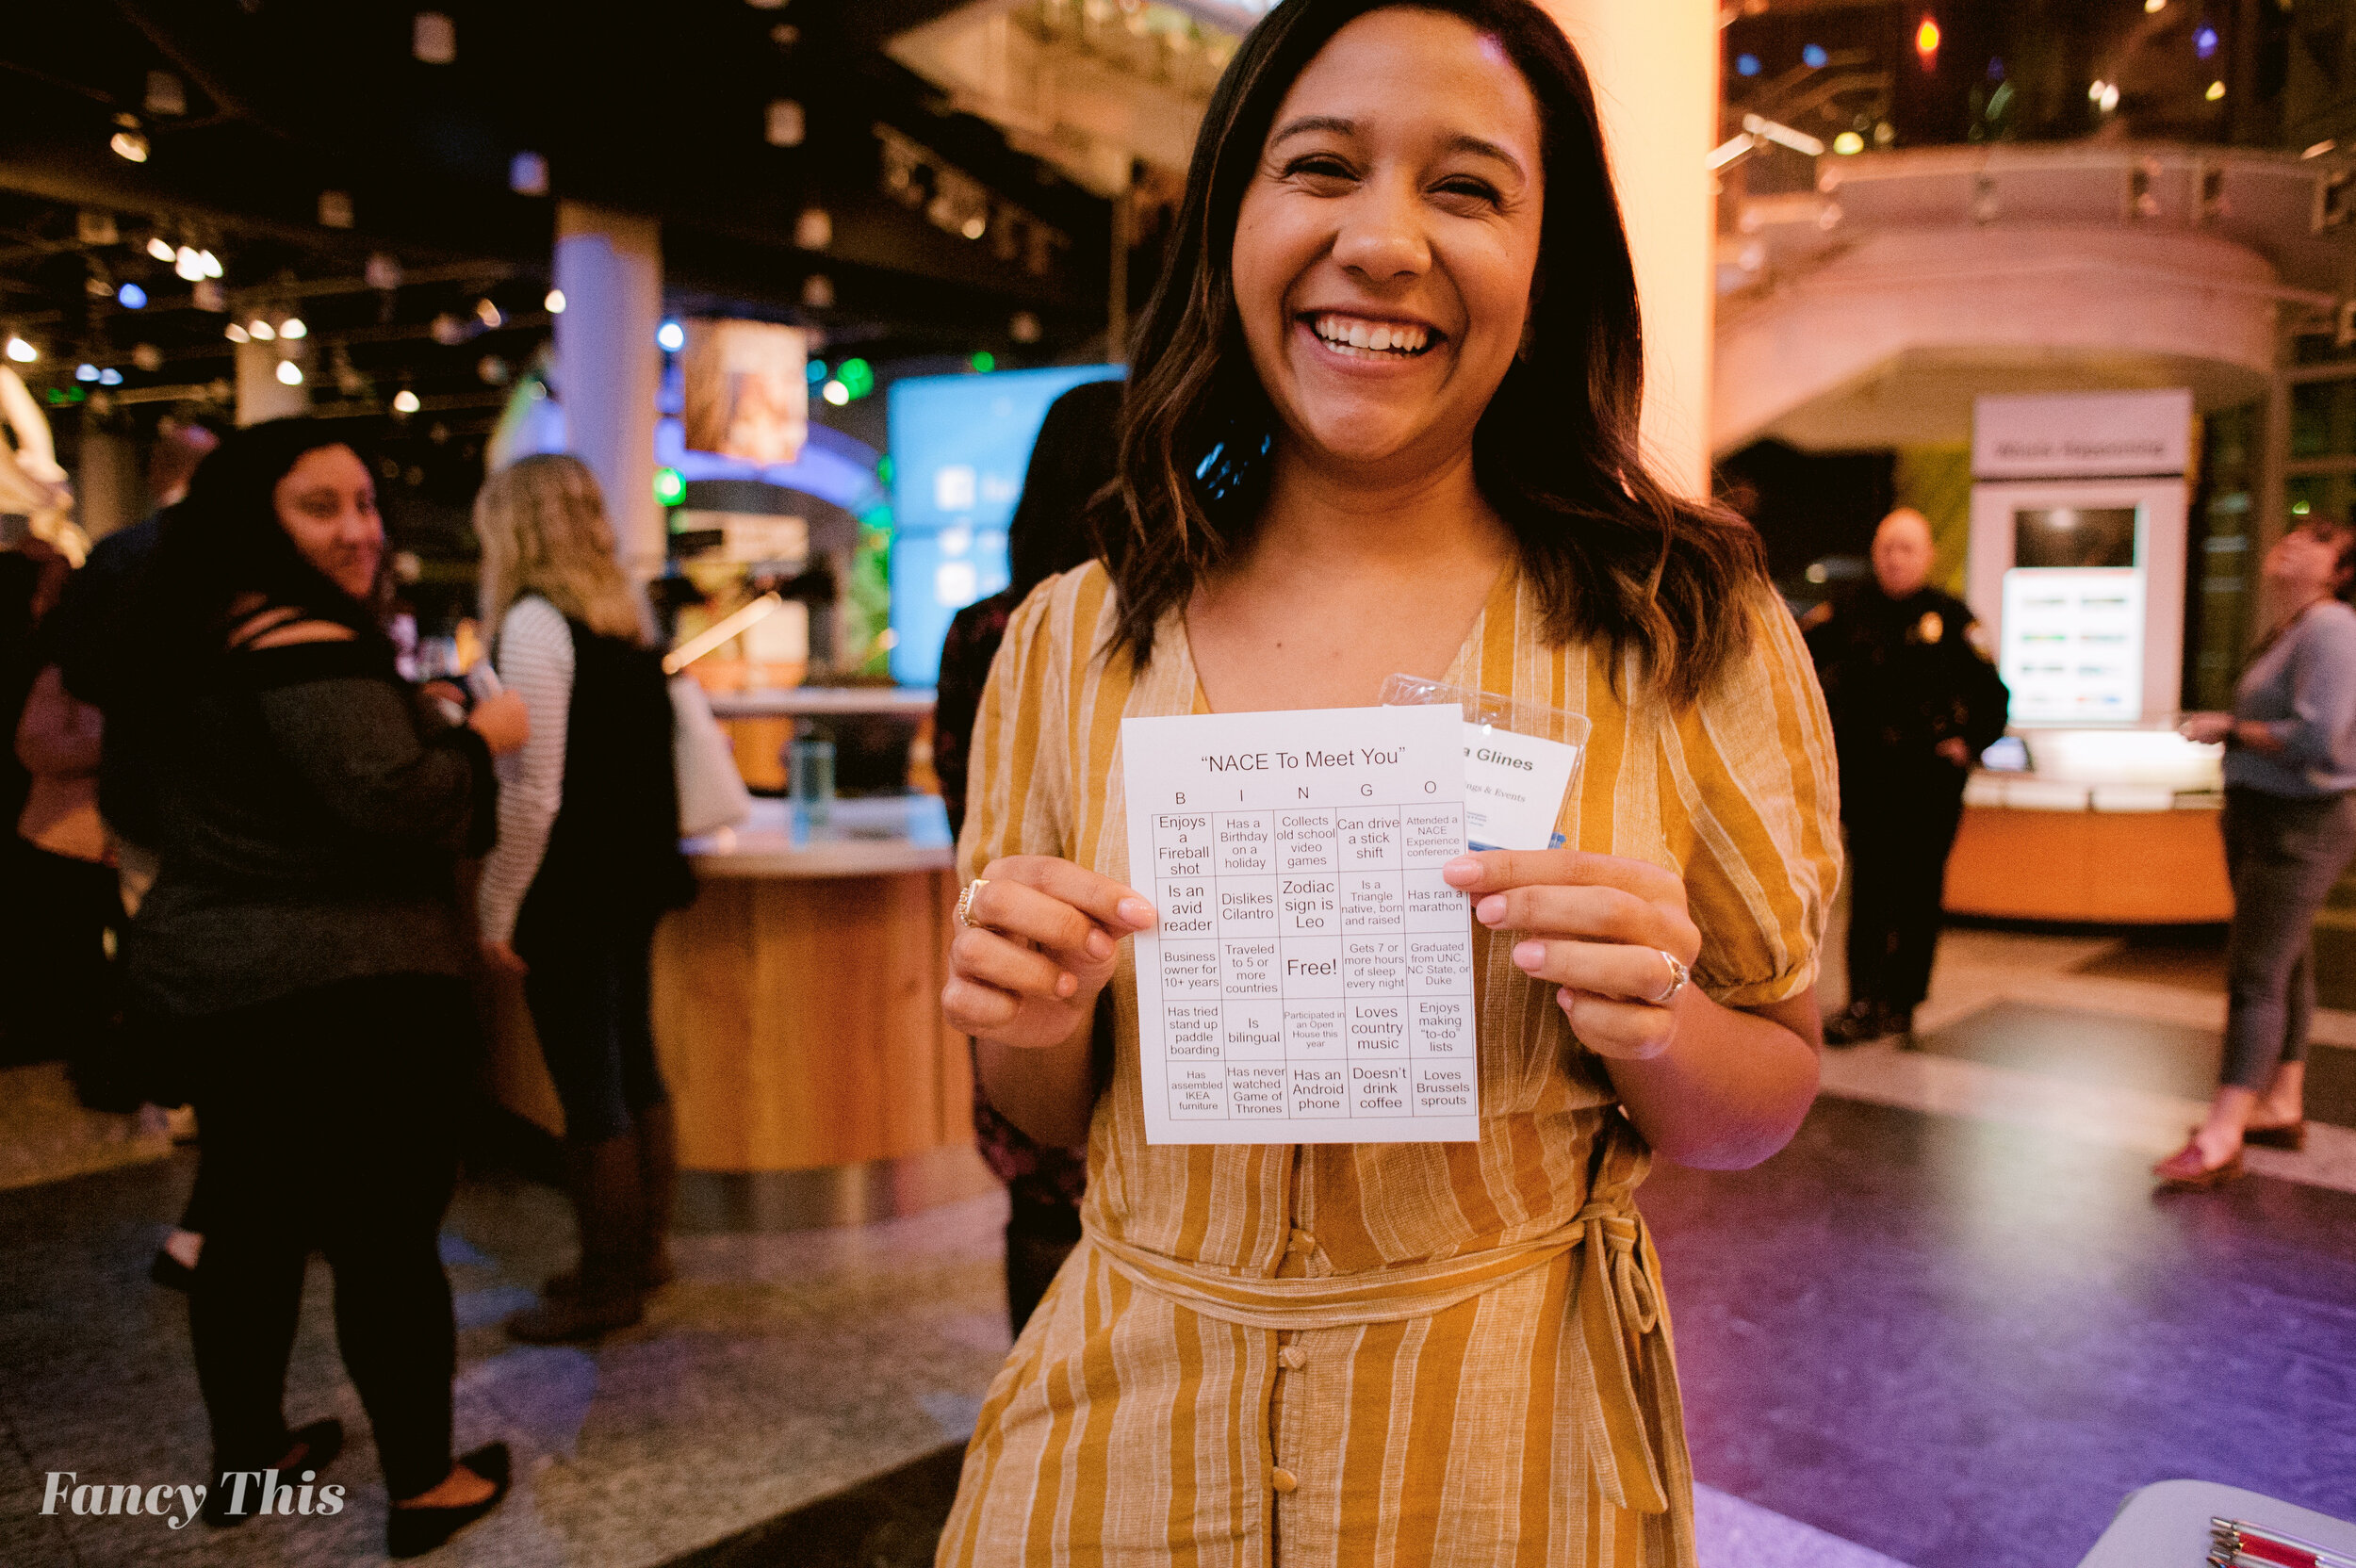 "NACE To Meet You"
B I N G O
Enjoys
a
Fireball
shot
Has a
Birthday
on a
holiday
Collects
old school
video
games
Can drive
a stick
shift
Attended a
NACE
Experience
conference
Is an
avid
reader
Dislikes
Cilantro
Zodiac
sign is
Leo
Is a
Triangle
native, born
and raised
Has ran a
marathon
Business
owner for
10+ years
Traveled
to 5 or
more
countries
Free!
Gets 7 or
more hours
of sleep
every night
Graduated
from UNC,
NC State, or
Duke
Has tried
stand up
paddle
boarding
Is
bilingual
Participated in
an Open
House this
year
Loves
country
music
Enjoys
making
"to-do"
lists
Has
assembled
IKEA
furniture
Has never
watched
Game of
Thrones
Has an
Android
phone
Doesn't
drink
coffee
Loves
Brussels
sprouts
a Glines
ngs & Events
Fancy This